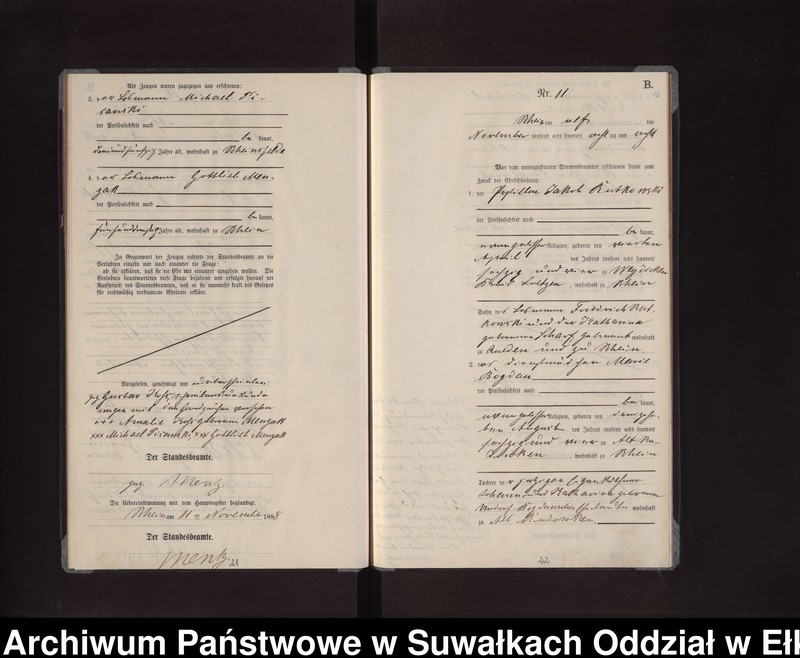 Als Zeugen waren zugezogen und erschienen:
3. der Losmann Michael Pi-
sanski
der Persönlichkeit nach
be kannt,
Jahre alt, wohnhaft zu Rheinsfelde
4. der Losmann Gottlieb Men-
zak
der Persönlichkeit nach
be kannt,
Jahre alt, wohnhaft zu Rhein
In Gegenwart der Zeugen richtete der Standesbeamte an die
Verlobten einzeln und nach einander die Frage:
ob sie erklären, daß sie die Ehe mit einander eingehen wollen. Die
Verlobten beantworteten diese Frage bejahend und erfolgte hierauf der
Ausspruch des Standesbeamten, daß er sie nunmehr kraft des Gesetzes
für rechtmäßig verbundene Eheleute erkläre.
Vorgelesen, genehmigt und unterschrieben:
gez. Gustav
mit Handzeichen versehen
Amalie geborene Menzak
xxx Michael Pisanski, xxx Gottlieb Menzak
Der Standesbeamte.
gez. Mentz
Die Uebereinstimmung mit dem Hauptregister beglaubigt.
Rhein am 11 ten November 1888
Der Standesbeamte.
Mentz
21
B.
Nr. 11.
Rhein am elf ten
November tausend acht hundert acht zig und acht
Vor dem unterzeichneten Standesbeamten erschienen heute zum
Zweck der Eheschließung:
1. der Postillon Jakob Rutkowski
der Persönlichkeit nach
be kannt,
evangelischer Religion, geboren den vierten
April des Jahres tausend acht hundert
sechzig und vier zu
Kreis Loetzen, wohnhaft zu Rhein
Sohn des Losmann Friedrich Rut-
kowski und der Katharina
geborene Scharf wohnhaft
zu und zu Rhein
2. das Dienstmädchen Marie
Bogdan
der Persönlichkeit nach
be kannt,
evangelischer Religion, geboren den
ten August des Jahres tausend acht hundert
sechzig und vier zu Alt Ru-
dowken, wohnhaft zu Rhein
Tochter der
Johann und Katharina geborene
Bogdan wohnhaft
zu Alt Rudowken
22
Archiwum Państwowe w Suwałkach Oddział w Ełk